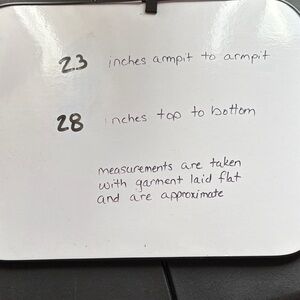 23 inches armpit to armpit
28 inches top to bottom
measurements are taken
with garment laid flat
and are approximate